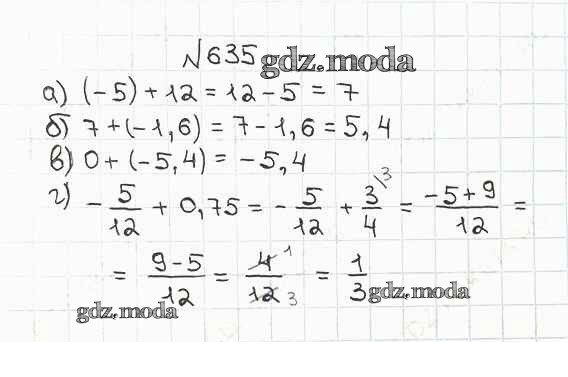 №635 gdz.moda
а) (-5) + 12 = 12 - 5 = 7
б) 7 + (-1,6) = 7 - 1,6 = 5,4
в) 0 + (-5,4) = -5,4
г) - 5/12 + 0,75 = - 5/12 + 3\3/4 = -5+9/12 =
= 9-5/12 = 4 1/12 3 = 1/3 gdz.moda
gdz.moda